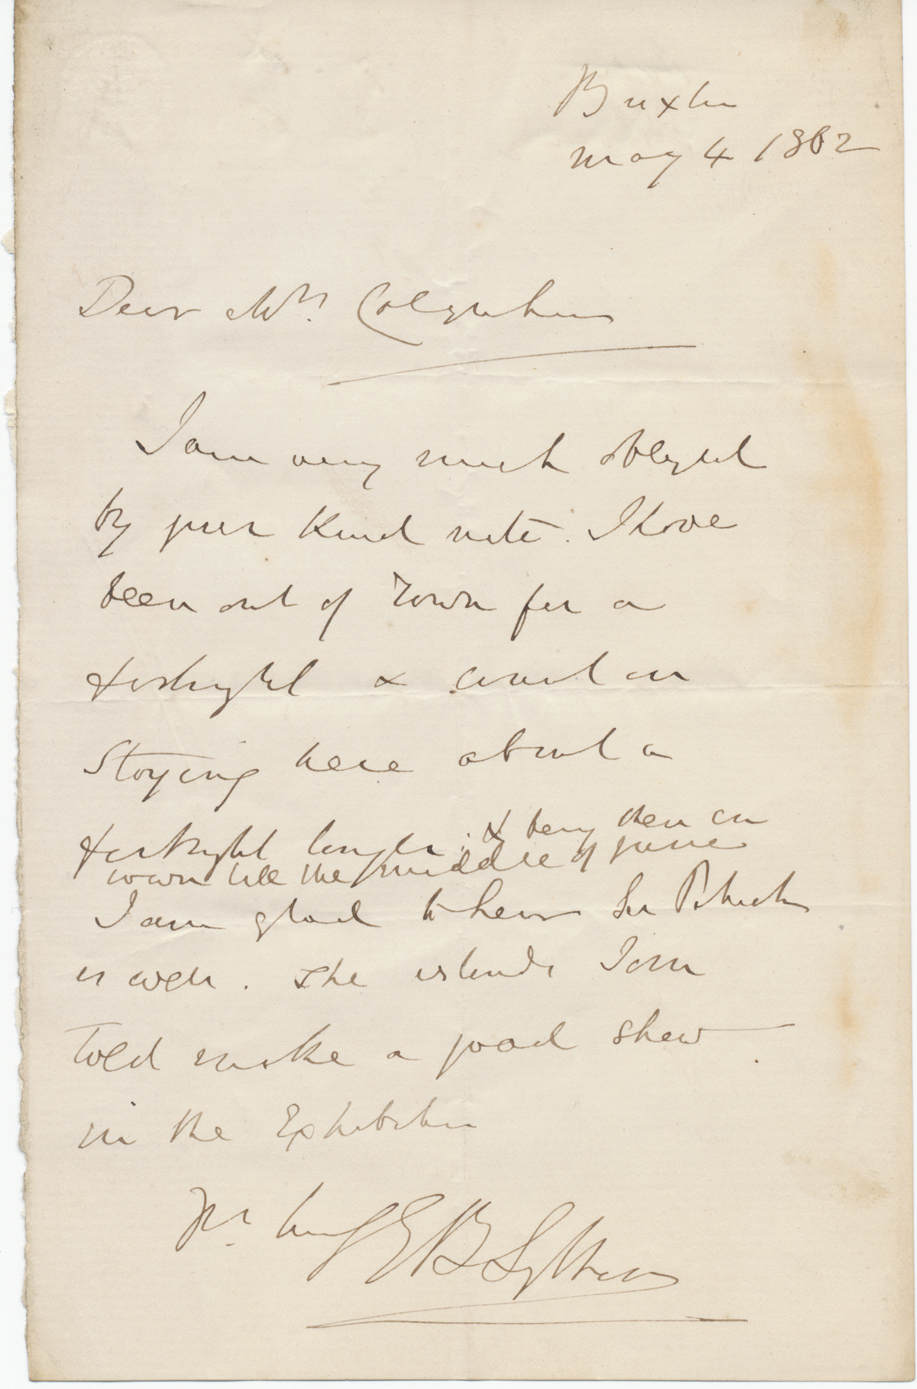 Buxton
May 4 1862
Dear Mrs. Colquhoun
I am very much obliged
by your kind note. I have
been out of Town for a
fortnight & count on
staying here about a
fortnight longer. & being then in
town till the middle of June
I am glad to hear Sir Patrick
is well. The islands I am
told make a good shew
in the Exhibition
Yrs. truly E B Lytton